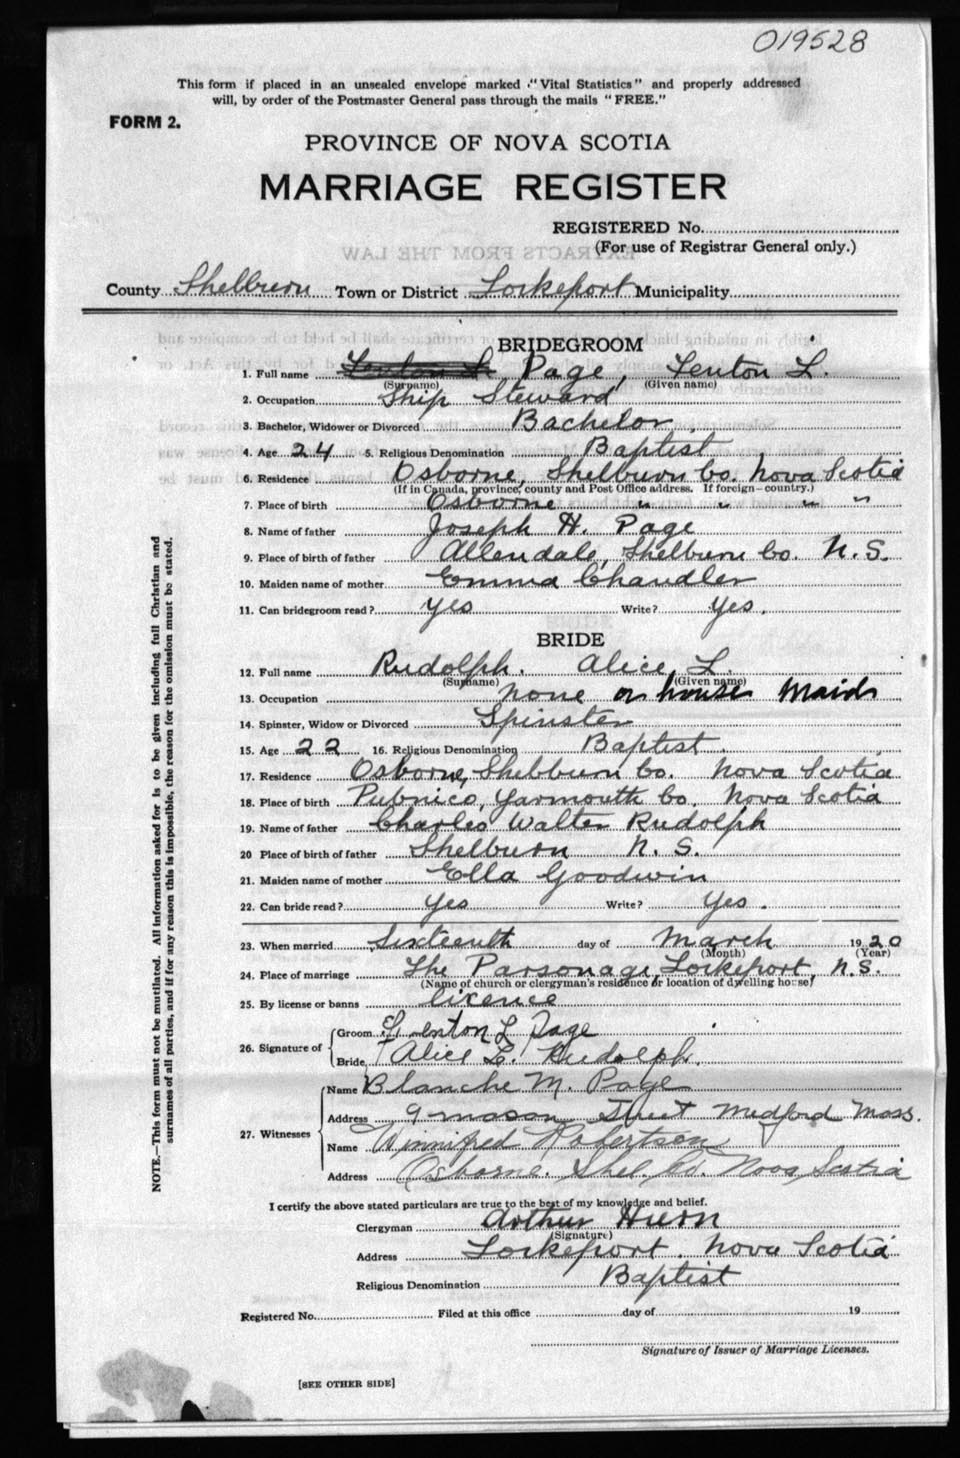 019528
This form if placed in an unsealed envelope marked "Vital Statistics" and properly addressed
will, by order of the Postmaster General pass through the mails "FREE."
FORM 2.
PROVINCE OF NOVA SCOTIA
MARRIAGE REGISTER
REGISTERED No.
(For use of Registrar General only.)
County Shelburn Town or District Lockeport Municipality
BRIDEGROOM
1. Full name Page, Fenton L.
(Surname) (Given name)
2. Occupation Ship Steward
3. Bachelor, Widower or Divorced Bachelor
4. Age 24 5. Religious Denomination Baptist
6. Residence Osborne, Shelburn Co. Nova Scotia
(If in Canada, province, county and Post Office address. If foreign—country.)
7. Place of birth Osborne " " " "
8. Name of father Joseph H. Page
9. Place of birth of father Allendale, Shelburn Co. N.S.
10. Maiden name of mother Emma Chandler
11. Can bridegroom read? Yes Write? Yes.
BRIDE
12. Full name Rudolph. Alice L.
(Surname) (Given name)
13. Occupation None or house Maid
14. Spinster, Widow or Divorced Spinster
15. Age 22 16. Religious Denomination Baptist.
17. Residence Osborne, Shelburn Co. Nova Scotia
18. Place of birth Pubnico, Yarmouth Co. Nova Scotia
19. Name of father Charles Walter Rudolph
20 Place of birth of father Shelburn N.S.
21. Maiden name of mother Ella Goodwin
22. Can bride read? Yes Write? Yes.
23. When married Sixteenth day of March 1920
(Month) (Year)
24. Place of marriage The Parsonage, Lockeport, N.S.
(Name of church or clergyman's residence or location of dwelling house)
25. By license or banns licence
26. Signature of Groom Fenton L Page
Bride Alice L. Rudolph.
27. Witnesses Name Blanche M. Page
Address 9 Mason Street Medford Mass.
Name Winnifred Robertson
Address Osborne. Shel. Co. Nova Scotia
I certify the above stated particulars are true to the best of my knowledge and belief.
Clergyman Arthur Hiern
(Signature)
Address Lockeport. Nova Scotia
Religious Denomination Baptist
Registered No. Filed at this office day of 19
Signature of Issuer of Marriage Licenses.
[SEE OTHER SIDE]
NOTE.—This form must not be mutilated. All information asked for is to be given including full Christian and
surnames of all parties, and if for any reason this is impossible, the reason for the omission must be stated.